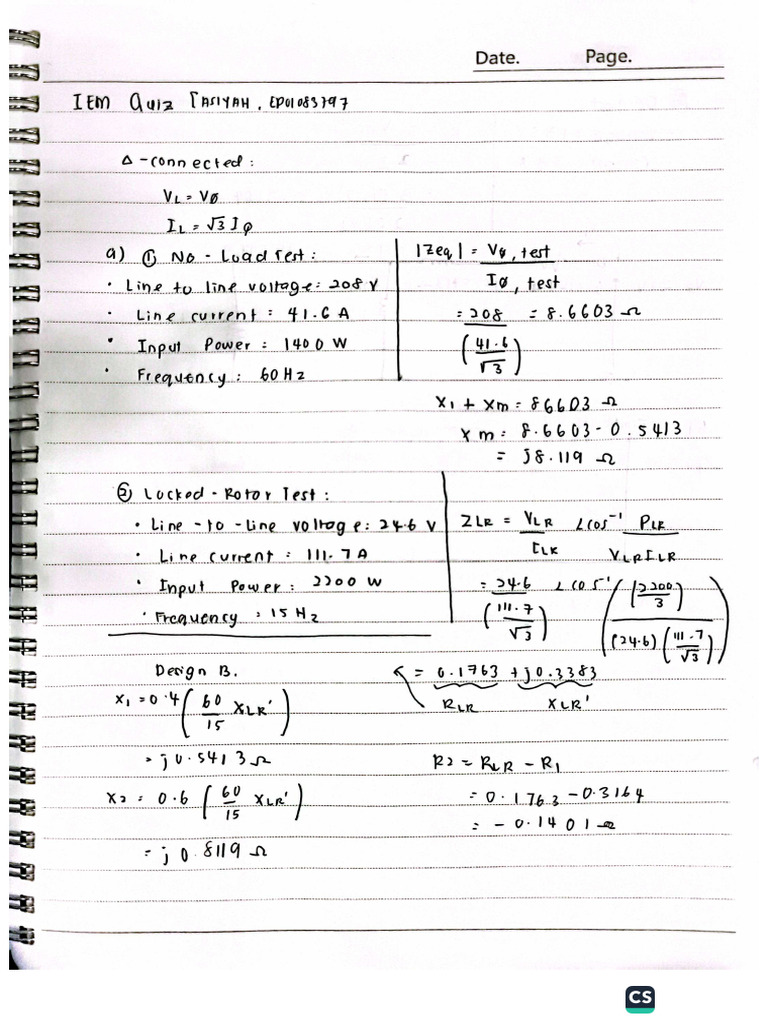 Date. Page.
IEM Quiz TASIYAH, EP01083797
Δ-connected:
VL = Vø
IL = √3 Iφ
a) ① No-Load Test:
• Line to line voltage: 208 V
• Line current: 41.6 A
• Input Power: 1400 W
• Frequency: 60 Hz
|Zeq| = Vø, test / Iø, test
= 208 / (41.6/√3) = 8.6603 Ω
X1 + Xm = 86603 Ω
Xm = 8.6603 - 0.5413
= j8.119 Ω
② Locked-Rotor Test:
• Line-to-Line voltage: 24.6 V
• Line current: 111.7 A
• Input Power: 2200 W
• Frequency: 15 Hz
ZLR = VLR / ILR ∠cos⁻¹ PLR / VLR ILR
= 24.6 / (111.7/√3) ∠cos⁻¹ ((2200/3) / ((24.6)(111.7/√3)))
= 0.1763 + j0.3383
RLR XLR'
Design B.
X1 = 0.4 (60/15 XLR')
= j0.5413 Ω
X2 = 0.6 (60/15 XLR')
= j0.8119 Ω
R2 = RLR - R1
= 0.1763 - 0.3164
= -0.1401 Ω
CS